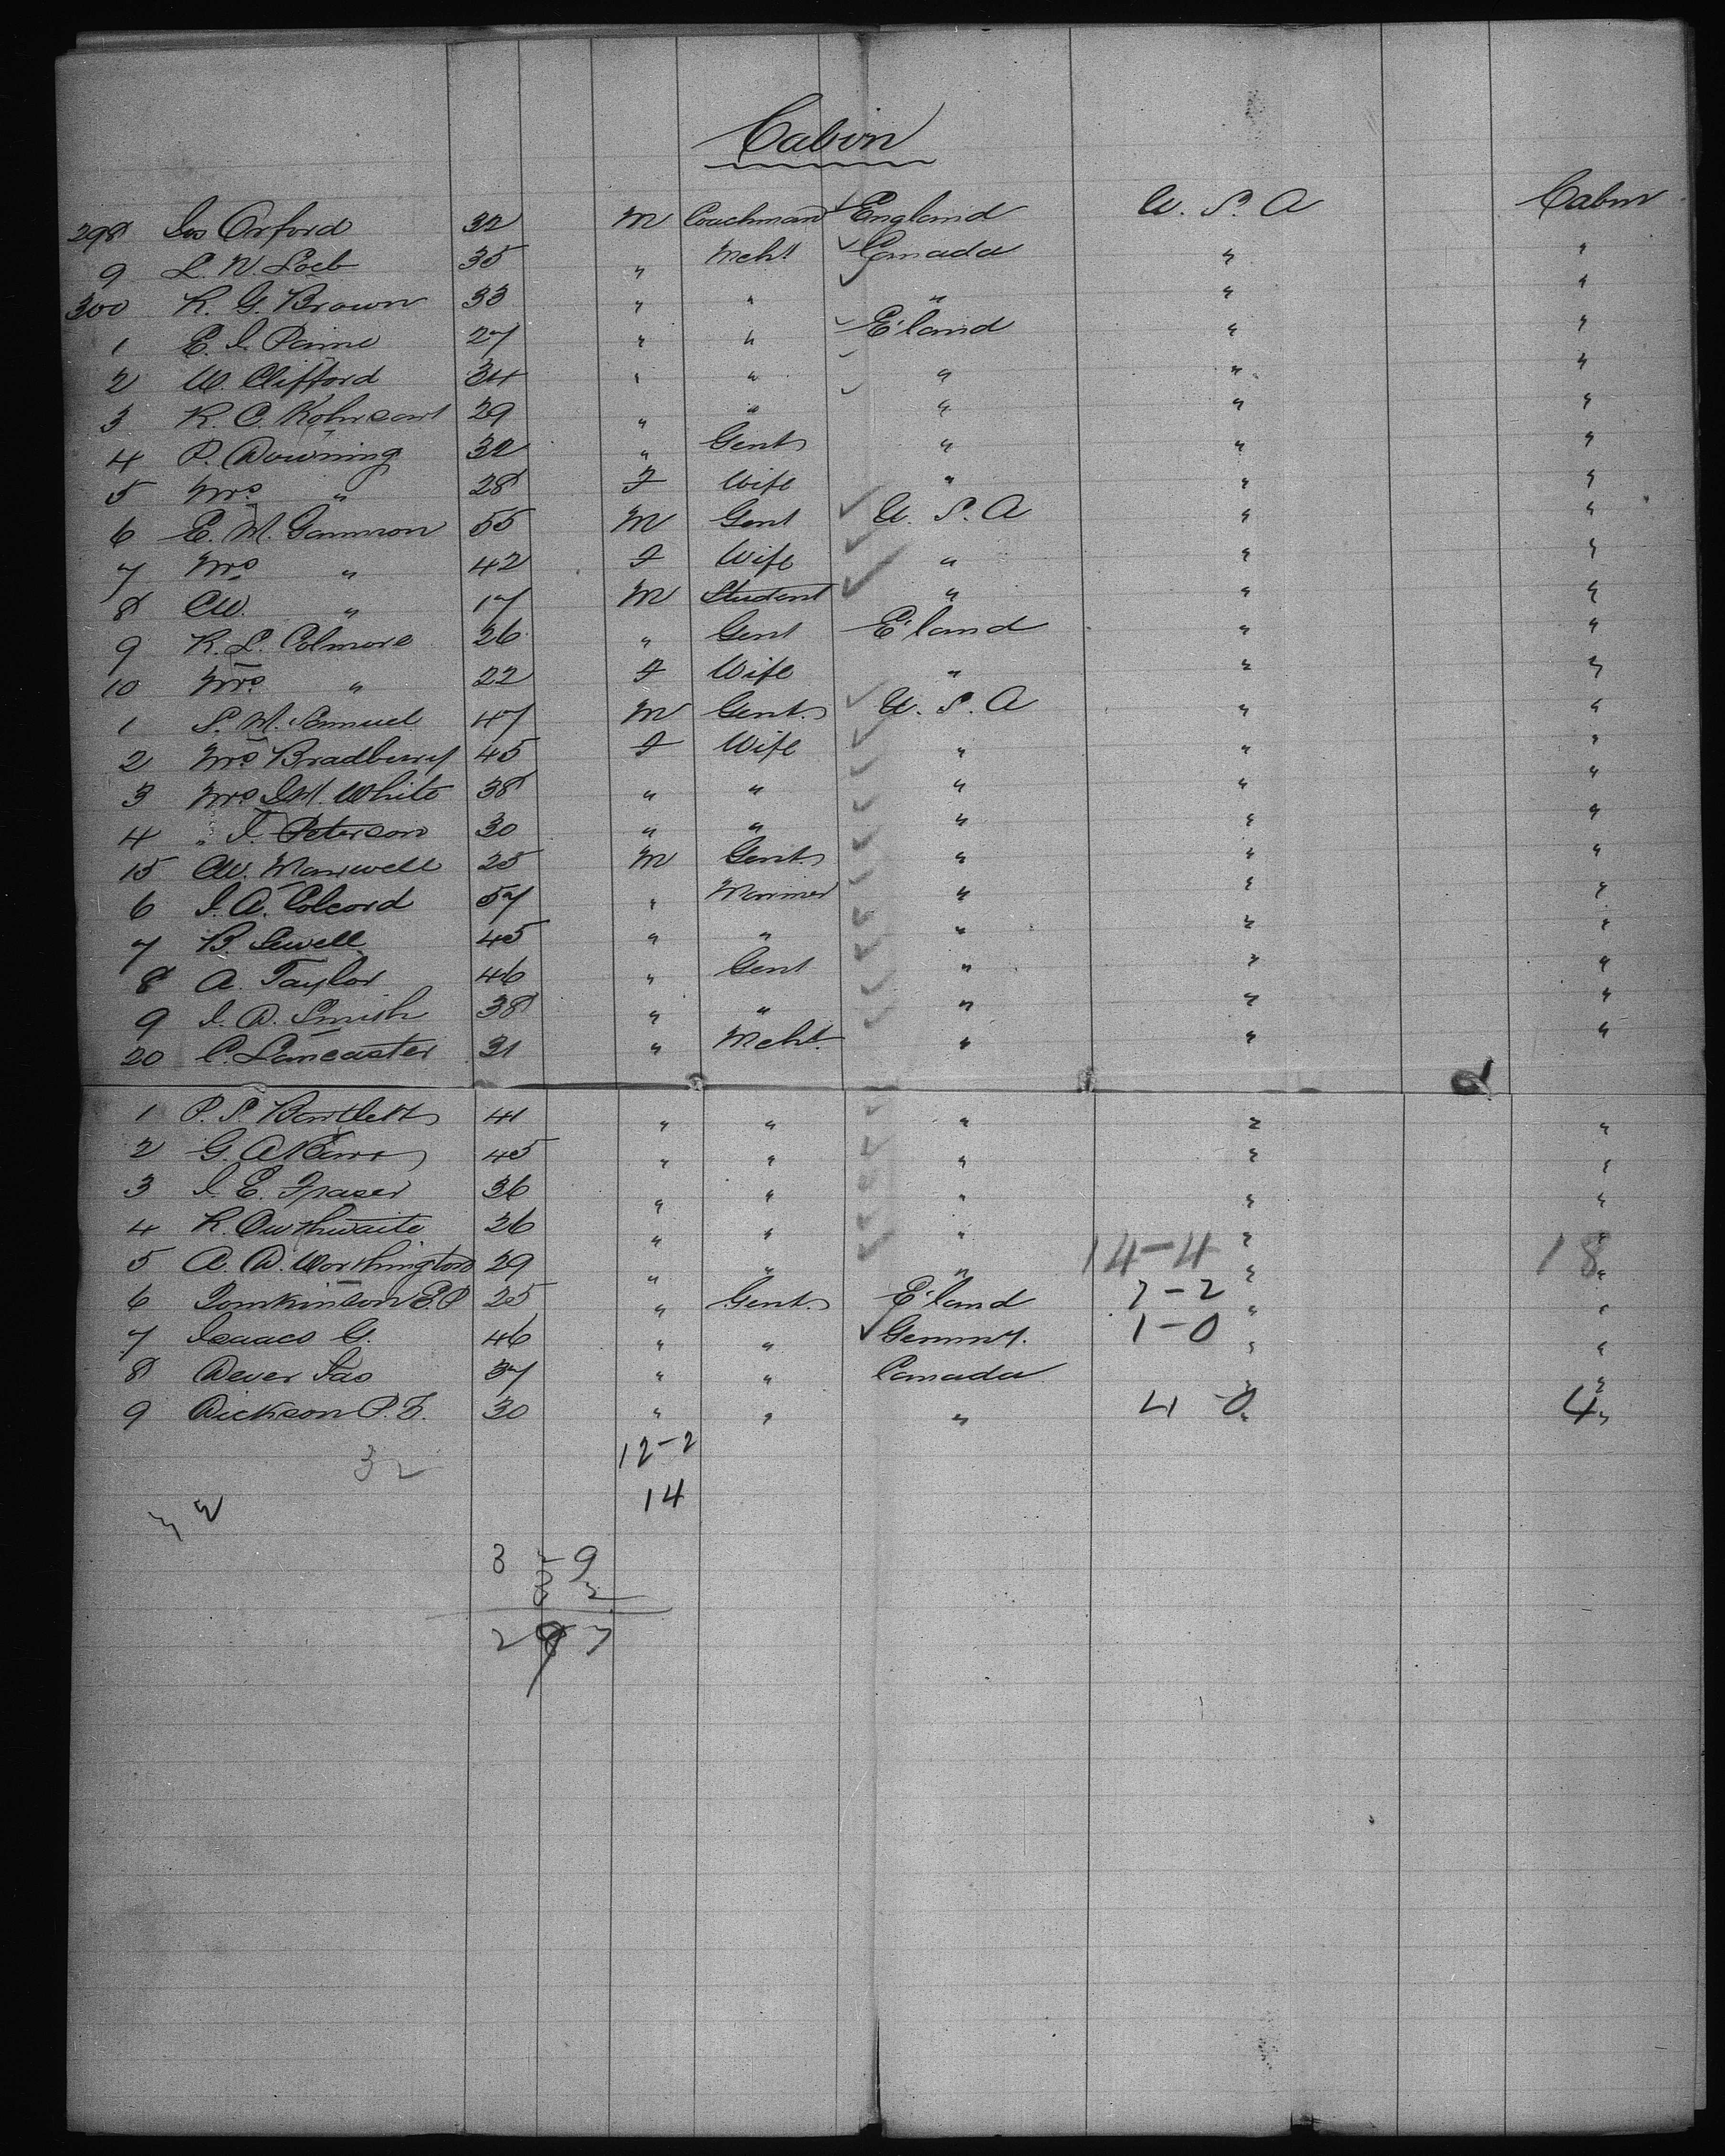 Cabin
298 Jos Orford 32 M Coachman England U.S.A Cabin
9 L. N. Loeb 35 " Mcht Canada " "
300 R. G. Brown 33 " " " " "
1 E. J. Paine 27 " " E'land " "
2 W. Clifford 34 " " " " "
3 R. C. 29 " " " " "
4 P. Downing 32 " Gent " " "
5 Mrs " 28 F Wife " " "
6 E. M. Gammon 55 M Gent U.S.A " "
7 Mrs " 42 F Wife " " "
8 CW. " 17 M Student " " "
9 R. L. Colmore 26 " Gent E'land " "
10 Mrs " 22 F Wife " " "
1 S. M. Samuel 47 M Gent. U.S.A " "
2 Mrs Bradbury 45 F Wife " " "
3 Mrs J.M. White 38 " " " " "
4 " J. Peterson 30 " " " " "
15 CW. Maxwell 25 M Gent " " "
6 J. A. Colcord 57 " Mariner " " "
7 B. Sewell 45 " " " " "
8 A. Taylor 46 " Gent " " "
9 J. D. Smith 38 " " " " "
20 C. Lancaster 31 " Mcht. " " "
1 P. S. Bartlett 41 " " " " "
2 G. A. 45 " " " " "
3 J. E. Fraser 36 " " " " "
4 R. Outhwaite 26 " " " " "
5 A. D. Worthington 29 " " " 14-4 " 18 "
6 Tomkinson E.P 25 " Gent. E'land 7-2 " "
7 Isaacs G. 46 " " Germny. 1-0 " "
8 Dever Jas 37 " " Canada " "
9 Dickson P. F. 30 " " " 4-0 " 4 "
32 12-2
14
3 2 9
3 2
2 9 7